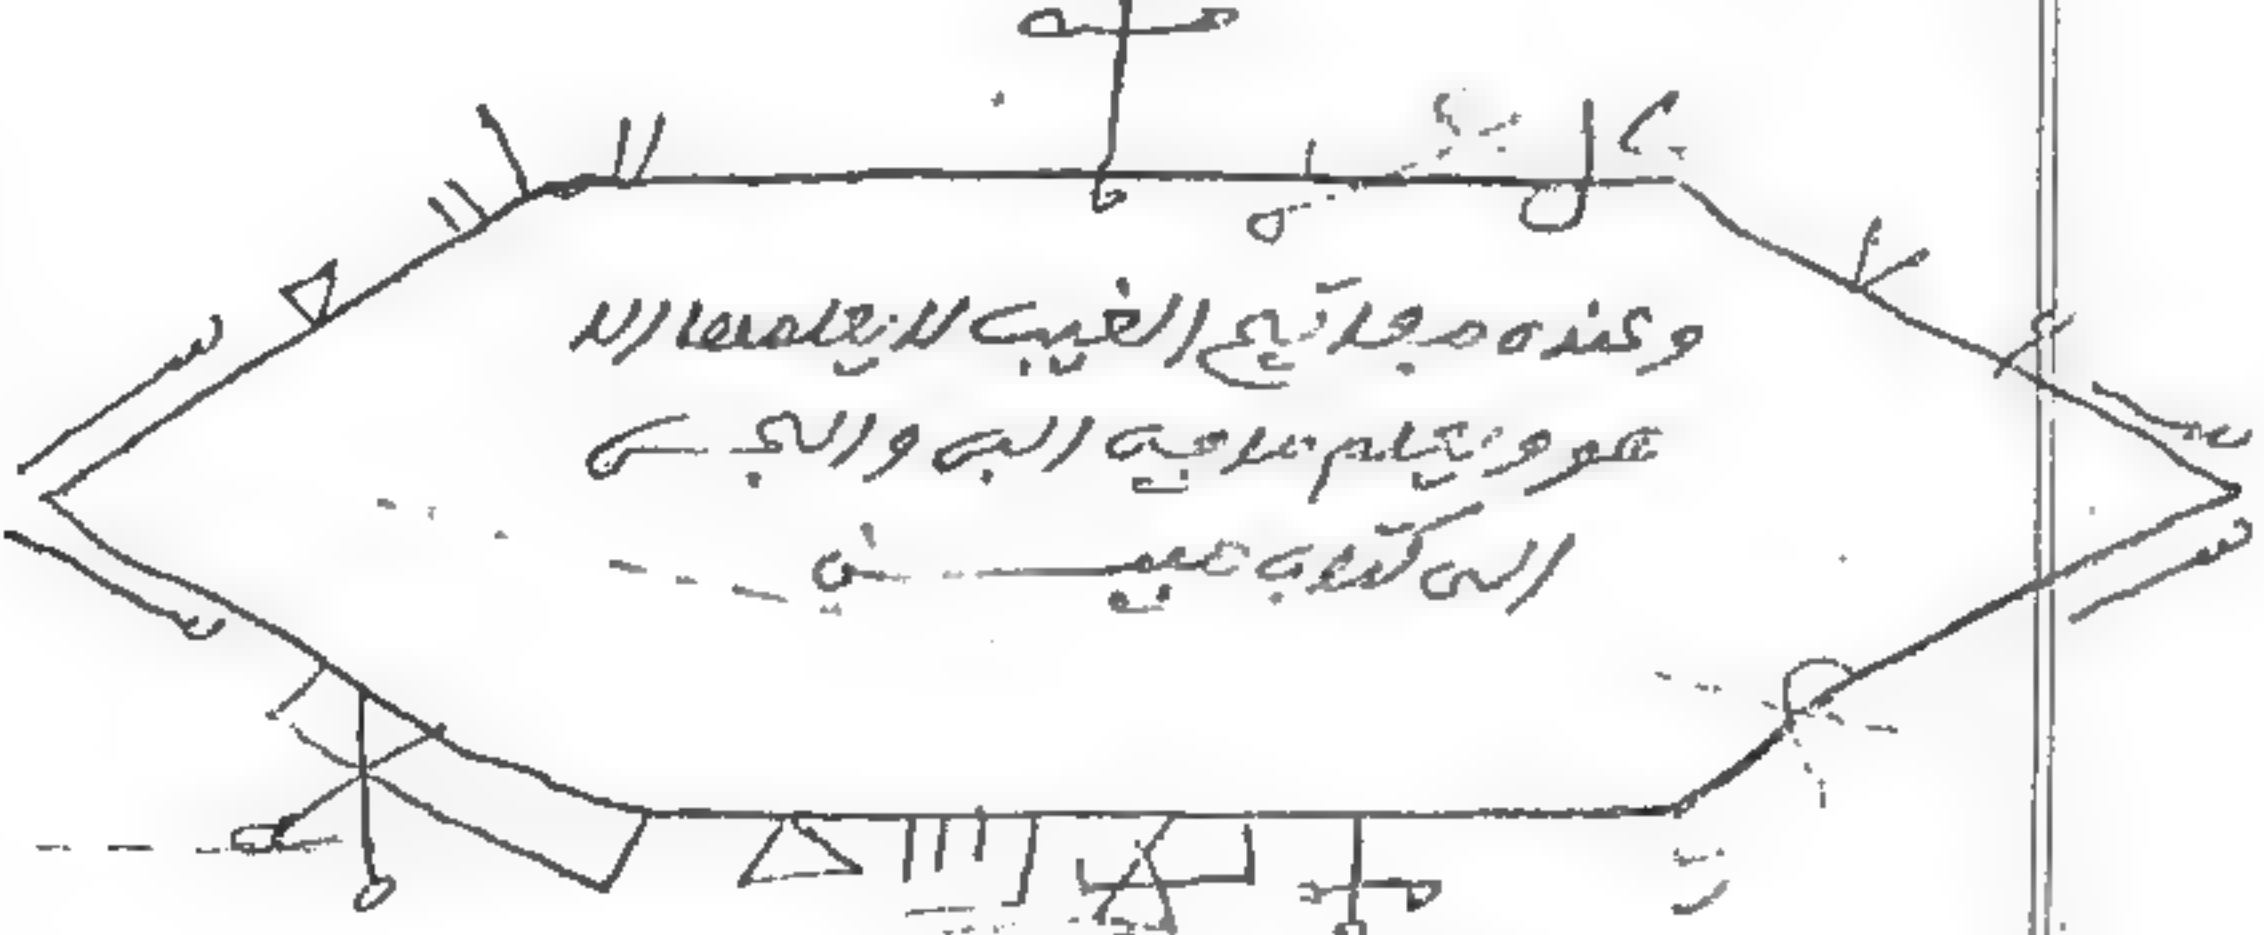 وعنده مفاتيح الغيب لا يعلمها الا
هو ويعلم ما فى البر والبحر
الى كتاب مبين